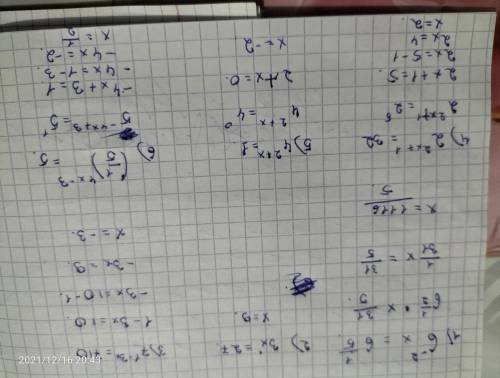 1) 6⁻² x = 6 1/5
x = 1116/5
2) 3x = 27.
x = 9.
1-3x = 10.
-3x = 10-1.
-3x = 9.
x = -3.
4) 2²ˣ⁺¹ = 32
2²ˣ⁺¹ = 2⁵
2x+1 = 5.
2x = 5-1
2x = 4
x = 2.
5) 4²⁺ˣ = 1
4²⁺ˣ = 4⁰
2+x = 0.
x = -2.
6) (1/5)⁴ˣ⁻³ = 5.
5⁻⁴ˣ⁺³ = 5¹
-4x+3 = 1
-4x = 1-3.
-4x = -2
x = 1/2
2021/12/16 20:43